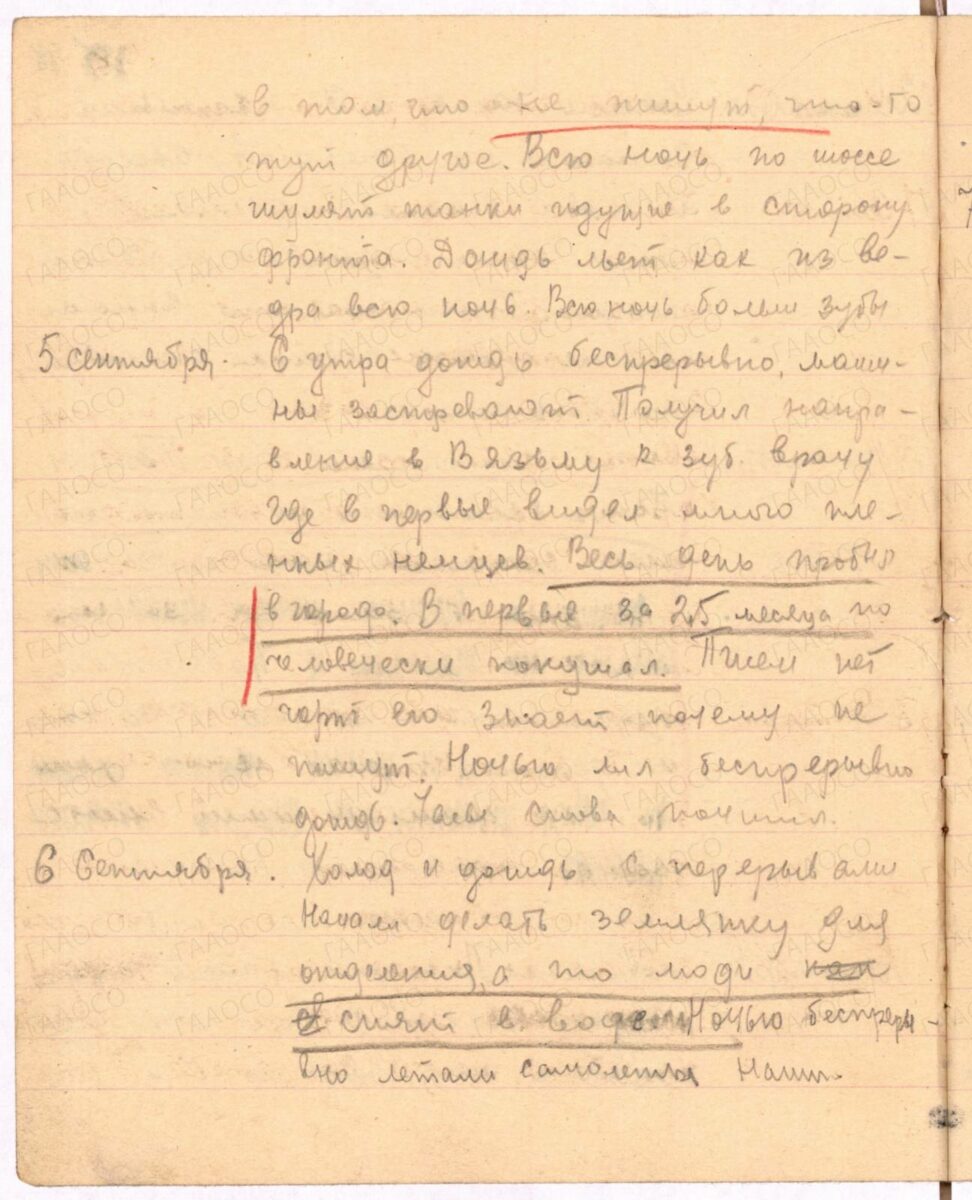 в том, что не пишут, что-то
тут другое. Всю ночь по шоссе
гуляют танки идущие в сторону
фронта. Дождь льет как из ве-
дра всю ночь. Всю ночь болели зубы
5 сентября. С утра дождь беспрерывно, маши-
ны застревают. Получил напра-
вление в Вязьму к зуб. врачу
где в первые видел много пле-
нных немцев. Весь день пробыл
в городе. В первые за 2,5 месяца по
человечески покушал. Писем нет
чорт его знает почему не
пишут. Ночью лил беспрерывно
дождь. Часы снова починил.
6 Сентября. Холод и дождь с перерывами
Начали делать землянку для
отделения, а то люди
спят в воде. Ночью беспреры-
вно летали самолеты Наши.
ГААОСО